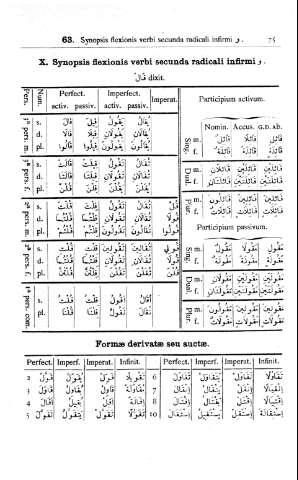 63. Synopsis flexionis verbi secunda radicali infirmi و. 75
X. Synopsis flexionis verbi secunda radicali infirmi و.
قَالَ dixit.
Pers. Num. Perfect. Imperfect. Imperat. Participium activum.
activ. passiv. activ. passiv.
Nomin. Accus. G.D. Ab.
3ª pers. m. s. قَالَ قِيلَ يَقُولُ يُقَالُ
d. قَالَا قِيلَا يَقُولَانِ يُقَالَانِ
pl. قَالُوا قِيلُوا يَقُولُونَ يُقَالُونَ
Sing. m. قَائِلٌ قَائِلًا قَائِلٍ
f. قَائِلَةٌ قَائِلَةً قَائِلَةٍ
3ª pers. f. s. قَالَتْ قِيلَتْ تَقُولُ تُقَالُ
d. قَالَتَا قِيلَتَا تَقُولَانِ تُقَالَانِ
pl. قُلْنَ قِلْنَ يَقُلْنَ يُقَلْنَ
Dual. m. قَائِلَانِ قَائِلَيْنِ قَائِلَيْنِ
f. قَائِلَتَانِ قَائِلَتَيْنِ قَائِلَتَيْنِ
2ª pers. m. s. قُلْتَ قِلْتَ تَقُولُ تُقَالُ قُلْ
d. قُلْتُمَا قِلْتُمَا تَقُولَانِ تُقَالَانِ قُولَا
pl. قُلْتُمْ قِلْتُمْ تَقُولُونَ تُقَالُونَ قُولُوا
Plur. m. قَائِلُونَ قَائِلِينَ قَائِلِينَ
f. قَائِلَاتٌ قَائِلَاتٍ قَائِلَاتٍ
Participium passivum.
2ª pers. f. s. قُلْتِ قِلْتِ تَقُولِينَ تُقَالِينَ قُولِي
d. قُلْتُمَا قِلْتُمَا تَقُولَانِ تُقَالَانِ قُولَا
pl. قُلْتُنَّ قِلْتُنَّ تَقُلْنَ تُقَلْنَ قُلْنَ
Sing. m. مَقُولٌ مَقُولًا مَقُولٍ
f. مَقُولَةٌ مَقُولَةً مَقُولَةٍ
Dual. m. مَقُولَانِ مَقُولَيْنِ مَقُولَيْنِ
f. مَقُولَتَانِ مَقُولَتَيْنِ مَقُولَتَيْنِ
1ª pers. com. s. قُلْتُ قِلْتُ أَقُولُ أُقَالُ
pl. قُلْنَا قِلْنَا نَقُولُ نُقَالُ
Plur. m. مَقُولُونَ مَقُولِينَ مَقُولِينَ
f. مَقُولَاتٌ مَقُولَاتٍ مَقُولَاتٍ
Formæ derivatæ seu auctæ.
Perfect. Imperf. Imperat. Infinit. Perfect. Imperf. Imperat. Infinit.
2 قَوَّلَ يُقَوِّلُ قَوِّلْ تَقْوِيلًا 6 تَقَاوَلَ يَتَقَاوَلُ تَقَاوَلْ تَقَاوُلًا
3 قَاوَلَ يُقَاوِلُ قَاوِلْ مُقَاوَلَةً 7 إِنْقَالَ يَنْقَالُ إِنْقَلْ إِنْقِيَالًا
4 أَقَالَ يُقِيلُ أَقِلْ إِقَالَةً 8 إِقْتَالَ يَقْتَالُ إِقْتَلْ إِقْتِيَالًا
5 تَقَوَّلَ يَتَقَوَّلُ تَقَوَّلْ تَقَوُّلًا 10 إِسْتَقَالَ يَسْتَقِيلُ إِسْتَقِلْ إِسْتِقَالَةً